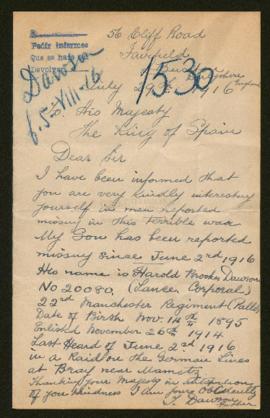 Pedir informes
Que se haga
Devolver
Dawson
f. 5-VIII-16
1530
56 Cliff Road
Fairfield
July 29th 1916
To His Majesty
The King of Spain
Dear Sir
I have been informed that
you are very kindly interesting
yourself in men reported
missing in this terrible war
My Son has been reported
missing since June 2rd 1916
His name is Harold Brooke Dawson
No 20080 (Lance Corporal)
22nd Manchester Regiment (Palls)
Date of Birth Nov. 14th 1895
Enlisted November 26th 1914
Last Heard of June 2rd 1916
in a Raid on the German Lines
at Bray near Mametz
Thanking Your Majesty in anticipation
of your kindness I am yours Obediently
Dawson
Father